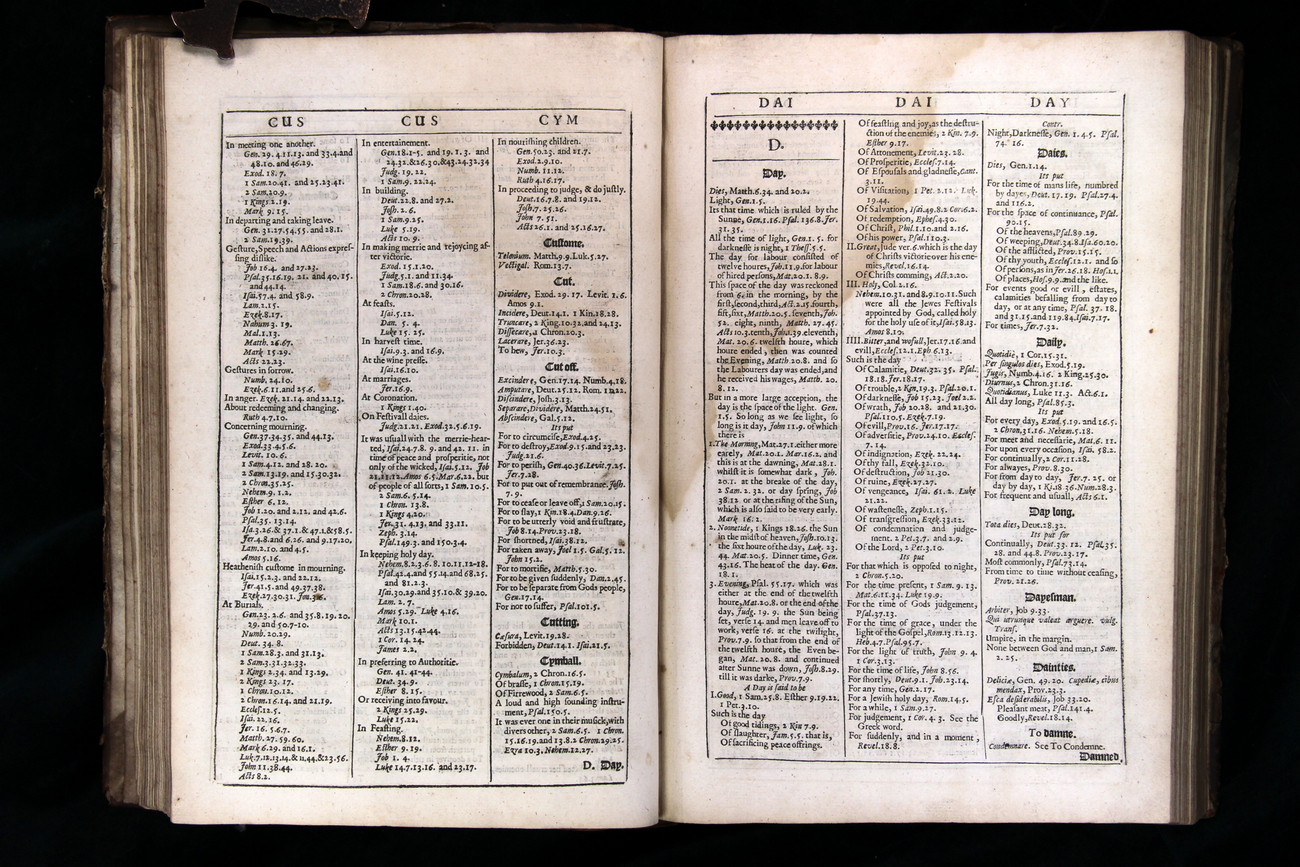 CUS
CUS
CYM
In meeting one another.
Gen. 29. 4.11.13. and 33.4.and
48.10. and 46.29.
Exod. 18. 7.
1 Sam.20.41. and 25.23.41.
2 Sam.20.9.
1 Kings 2.19.
Mark 9. 15.
In departing and taking leave.
Gen. 31.27.54.55. and 28.1.
2 Sam.19.39.
Gesture, Speech and Actions expres-
sing dislike.
Job 16.4. and 27.23.
Psal.35.16.19. 21. and 40. 15.
and 44.14.
Isai.57.4. and 58.9.
Lam.2.15.
Ezek.8.17.
Nahum 3. 19.
Mal.1.13.
Matth. 26.67.
Mark 15.29.
Acts 22.23.
Gestures in sorrow.
Numb. 24.10.
Ezek.6.11.and 25.6.
In anger. Ezek. 21.14. and 22.13.
About redeeming and changing.
Ruth 4.7.10.
Concerning mourning.
Gen.37.34.35. and 44.13.
Exod.33.4.5.6.
Levit. 10. 6.
1 Sam.4.12. and 28. 20.
2 Sam.13.19. and 15.30.32.
2 Chron.35.25.
Nehem.9. 1.2.
Esther 6. 12.
Job 1.20. and 2.12. and 42.6.
Psal.35. 13.14.
Isa.3.26.& 37.1.& 47.1.&58.5.
Jer.4.8.and 6.26. and 9.17.20.
Lam.2.10. and 4.5.
Amos 5.16.
Heathenish custome in mourning.
Isai.15.2.3. and 22.12.
Jer.41.5. and 49.37.38.
Ezek.27.30.31.
At Burials.
Gen.23. 2.6. and 35.8.19.20.
29. and 50.7-10.
Numb. 20.29.
Deut. 34. 8.
1 Sam.28.3. and 31.13.
2 Sam.3.31.32.33.
1 Kings 2.34. and 13.29.
2 Kings 23. 17.
1 Chron.10.12.
2 Chron.16.14. and 21.19.
Eccles.12.5.
Isai. 22.16.
Jer. 16. 5.6.7.
Matth. 27. 59.60.
Mark 6.29. and 16.1.
Luk.7.12.13.14.& 11.44.&23.56.
John 11.38.44.
Acts 8.2.
In entertainement.
Gen.18.1-5. and 19. 1. 3. and
24.32.&26.30.&43.24.32.34
Judg. 19. 22.
1 Sam.9. 22.24.
In building.
Deut.22.8. and 27.2.
Josh. 2. 6.
1 Sam.9.25.
Luke 5.19.
Acts 10. 9.
In making merrie and rejoycing af-
ter victorie.
Exod. 15.1.20.
Judg.5.1. and 11.34.
1 Sam.18.6. and 30.16.
2 Chron.20.28.
At feasts.
Isai.5.12.
Dan. 5. 4.
Luke 15. 25.
In harvest time.
Isai.9.3. and 16.9.
At the wine presse.
Isai.16.10.
At marriages.
Jer.16.9.
At Coronation.
1 Kings 1.40.
On Festivall daies.
Judg.21.21. Exod.32.5.6.19.
It was usuall with the merrie-hear-
ted, Isai.24.7.8. 9. and 42. 11. in
time of peace and prosperitie, not
only of the wicked, Isai.5.12. Job
21.11.12.Amos 6.5.Mar.6.22. but
of people of all sorts, 1 Sam. 10.5.
2 Sam. 6. 5.14.
1 Chron. 13.8.
1 Kings 4.20.
Jer.31. 4.13. and 33.11.
Zeph. 3.14.
Psal.149.3. and 150.3.4.
In keeping holy day.
Nehem.8.2.3.6. 8. 10.11.12-18.
Psal.42.4.and 55.14.and 68.25.
and 81.2.3.
Isai.30.29.and 35.10.& 39.20.
Lam. 2. 7.
Amos 5.29. Luke 4.16.
Mark 10.1.
Acts 13.15.42.44.
1 Cor. 14. 24.
James 2.2.
In preferring to Authoritie.
Gen. 41. 41-44.
Deut. 34.9.
Esther 8. 15.
Or receiving into favour.
2 Kings 25.29.
Luke 15.22.
In Feasting.
Nehem.8.12.
Esther 9. 19.
Job 1. 4.
Luke 14.7.13.16. and 23.17.
In nourishing children.
Gen.50.23. and 21.7.
Exod.2.9.10.
Numb. 11.12.
Ruth 4.16.17.
In proceeding to judge, & do justly.
Deut.16.7.8. and 19.12.
Josh.7.25.26.
John 7. 51.
Acts 26.1. and 25.16.27.
Custome.
Telonium. Matth.9.9.Luk.5.27.
Vectigal. Rom.13.7.
Cut.
Dividere, Exod. 29. 17. Levit. 1.6.
Amos 9.1.
Incidere, Deut.14.1. 1 Kin.18.28.
Truncare, 2 King.10.32.and 24.13.
Dissecare, 2 Chron.20.3.
Lacerare, Jer.36.23.
To hew, Jer.10.3.
Cut off.
Excindere, Gen.17.14. Numb.4.18.
Amputare, Deut.25.12. Rom. 11.22.
Discindere, Josh.3.13.
Separare, Dividere, Matth.24.51.
Abscindere, Gal.5.12.
Its put
For to circumcise, Exod.4.25.
For to destroy, Exod.9.15.and 23.23.
Judg.21.6.
For to perish, Gen.40.36.Levit.7.25.
Jer.7.28.
For to put out of remembrance. Josh.
7. 9.
For to cease or leave off, 1 Sam.20.15.
For to slay, 1 Kin.18.4.Dan.9.26.
For to be utterly void and frustrate,
Job 8.14.Prov.23.18.
For shortned, Isai.38.12.
For taken away, Joel 1.5. Gal.5. 12.
John 15.2.
For to mortifie, Matth.5.30.
For to be given suddenly, Dan.2.45.
For to be separate from Gods people,
Gen.17.14.
For not to suffer, Psal.101.5.
Cutting.
Cæsura, Levit.19.28.
Forbidden, Deut.14.1. Isai.21.5.
Cymball.
Cymbalum, 2 Chron.16.5.
Of brasse, 1 Chron.15.19.
Of Firrewood, 2 Sam.6.5.
A loud and high sounding instru-
ment, Psal.150.5.
It was ever one in their musick, with
divers other, 2 Sam.6.5. 1 Chron.
15.16.19.and 13.8.2 Chron.29.25.
Ezra 10.3.Nehem.12.27.
D. Day.
DAI
DAI
DAY
D.
Day.
Dies, Matth.6.34. and 20.2.
Light, Gen.1.5.
Its that time which is ruled by the
Sunne, Gen.1.16.Psal. 136.8.Jer.
31. 35.
All the time of light, Gen.1. 5. for
darknesse is night, 1 Thess.5.5.
The day for labour consisted of
twelve houres, Joh.11.9.for labour
of hired persons, Mat.20.1. 8.9.
This space of the day was reckoned
from 6. in the morning, by the
first,second,third, Act.2.15.fourth,
fift,sixt, Matth.20.5. seventh, Joh.
52. eight, ninth, Matth. 27.45.
Acts 10.3.tenth, Joh.1.39.eleventh,
Mat. 20.6. twelfth houre, which
houre ended, then was counted
the Evening, Matth.20.8. and so
the Labourers day was ended,and
he received his wages, Matth. 20.
8. 12.
But in a more large acception, the
day is the space of the light. Gen.
1.5. So long as we see light, so
long is it day, John 11.9. of which
there is
1.The Morning, Mat.27.1.either more
earely, Mat.20.1. Mar.16.2. and
this is at the dawning, Mat.28.1.
whilst it is somewhat dark, Joh.
20.1. at the breake of the day,
2 Sam. 2. 32. or day spring, Job
38.12. or at the rising of the Sun,
which is also said to be very early.
Mark 16. 2.
2. Noonetide, 1 Kings 18.26. the Sun
in the midst of heaven, Josh.10.13.
the sixt houre of the day, Luk. 23.
44. Mat.20.5. Dinner time, Gen.
43.16. The heat of the day. Gen.
18.1.
3. Evening, Psal. 55.17. which was
either at the end of the twelfth
houre, Mat.20.8. or the end of the
day, Judg. 19. 9. the Sun being
set, verse 14. and men leave off to
work, verse 16. at the twilight,
Prov.7.9. so that from the end of
the twelfth houre, the Even be-
gan, Mat. 20.8. and continued
after Sunne was down, Josh.8.29.
till it was darke, Prov.7.9.
A Day is said to be
I.Good, 1 Sam.25.8. Esther 9.19.22.
1 Pet.3.10.
Such is the day
Of good tidings, 2 Kin 7.9.
Of slaughter, Jam.5.5. that is,
Of sacrificing peace offrings.
Of feasting and joy,as the destru-
ction of the enemies, 2 Kin. 7.9.
Esther 9.17.
Of Attonement, Levit.23. 28.
Of Prosperitie, Eccles.7.14.
Of Espousals and gladnesse, Cant.
3.11.
Of Visitation, 1 Pet. 2.12. Luk.
19.44.
Of Salvation, Isai.49.8.2 Cor.6.2.
Of redemption, Ephes.4.30.
Of Christ, Phil.1.10.and 2.16.
Of his power, Psal.110.3.
II.Great, Jude ver.6.which is the day
of Christs victorie over his ene-
mies, Revel.16.14.
Of Christs comming, Act.2.20.
III. Holy, Col.2.16.
Nehem.10.31.and 8.9.10.11.Such
were all the Jewes Festivals
appointed by God, called holy
for the holy use of it, Isai.58.13.
Amos 8.10.
IIII.Bitter, and wofull, Jer.17.16 and
evill, Eccles.12.1. Eph 6.13.
Such is the day
Of Calamitie, Deut.32. 35. Psal.
18.18.Jer.18.17.
Of trouble, 2 Kin.19.3. Psal.20.1.
Of darknesse, Job 15.23. Joel 2.2.
Of wrath, Job 20.28. and 21.30.
Psal.110.5. Ezek.7.19.
Of evill, Prov.16. Jer.17.17.
Of adversitie, Prov.24.10. Eccles.
7. 14.
Of indignation, Ezek. 22.24.
Of thy fall, Ezek.32.10.
Of destruction, Job 21.30.
Of ruine, Ezek.27.27.
Of vengeance, Isai. 61. 2. Luke
21.22.
Of wastenesse, Zeph.1.15.
Of transgression, Ezek.33.12.
Of condemnation and judge-
ment. 2 Pet.3.7. and 2.9.
Of the Lord, 2 Pet.3.10.
Its put
For that which is opposed to night,
2 Chron.5.20.
For the time present, 1 Sam. 9. 13.
Mat.6.11.34. Luke 19.9.
For the time of Gods judgement,
Psal.37.13.
For the time of grace, under the
light of the Gospel, Rom.13.12.13.
Heb.4.7.Psal.95.7.
For the light of truth, John 9. 4.
1 Cor.3.13.
For the time of life, John 8.56.
For shortly, Deut.9.1. Job.23.14.
For any time, Gen.2.17.
For a Jewish holy day, Rom.14.5.
For a while, 1 Sam.9.27.
For judgement, 1 Cor. 4. 3. See the
Greek word.
For suddenly, and in a moment,
Revel.18.8.
Contr.
Night, Darknesse, Gen. 1. 4.5. Psal.
74. 16.
Daies.
Dies, Gen.1.14.
Its put
For the time of mans life, numbred
by dayes, Deut. 17.19. Psal.27.4.
and 116.2.
For the space of continuance, Psal.
90.15.
Of the heavens, Psal.89.29.
Of weeping, Deut.34.8.Isa.60.20.
Of the afflicted, Prov.15.15.
Of thy youth, Eccles.12.1. and so
Of persons, as in Jer.26.18. Hos.1.1.
Of places, Hos.9.9.and the like.
For events good or evill, estates,
calamities befalling from day to
day, or at any time, Psal. 37. 18.
and 31.15.and 119.84.Isai.7.17.
For times, Jer.7.32.
Daily.
Quotidiè, 1 Cor.15.31.
Per singulos dies, Exod.5.19.
Jugis, Numb.4.16. 2 King.25.30.
Diurnus, 2 Chron.31.16.
Quotidianus, Luke 11.3. Act.6.1.
All day long, Psal.85.3.
Its put
For every day, Exod.5.19. and 16.5.
2 Chron.31.16. Nehem.5.18.
For meet and necessarie, Mat.6. 11.
For upon every occasion, Isai. 58.2.
For continually, 2 Cor.11.28.
For alwayes, Prov.8.30.
For from day to day, Jer.7. 25. or
day by day, 1 Ki.28 36.Num.28.3.
For frequent and usuall, Acts 6.1.
Day long.
Tota dies, Deut.28.32.
Its put for
Continually, Deut.33. 12. Psal.35.
28. and 44.8. Prov.23.17.
Most commonly, Psal.73.14.
From time to time without ceasing,
Prov. 21.26.
Dayesman.
Arbiter, Job 9.33.
Qui utrunque valeat arguere. vulg.
Trans.
Umpire, in the margin.
None between God and man, 1 Sam.
2. 25.
Dainties.
Deliciæ, Gen. 49.20. Cupediæ, cibus
mendax, Prov.23.3.
Esca desiderabilis, Job 33.20.
Pleasant meat, Psal.141.4.
Goodly, Revel.18.14.
To damne.
Condemnare. See To Condemne.
Damned.